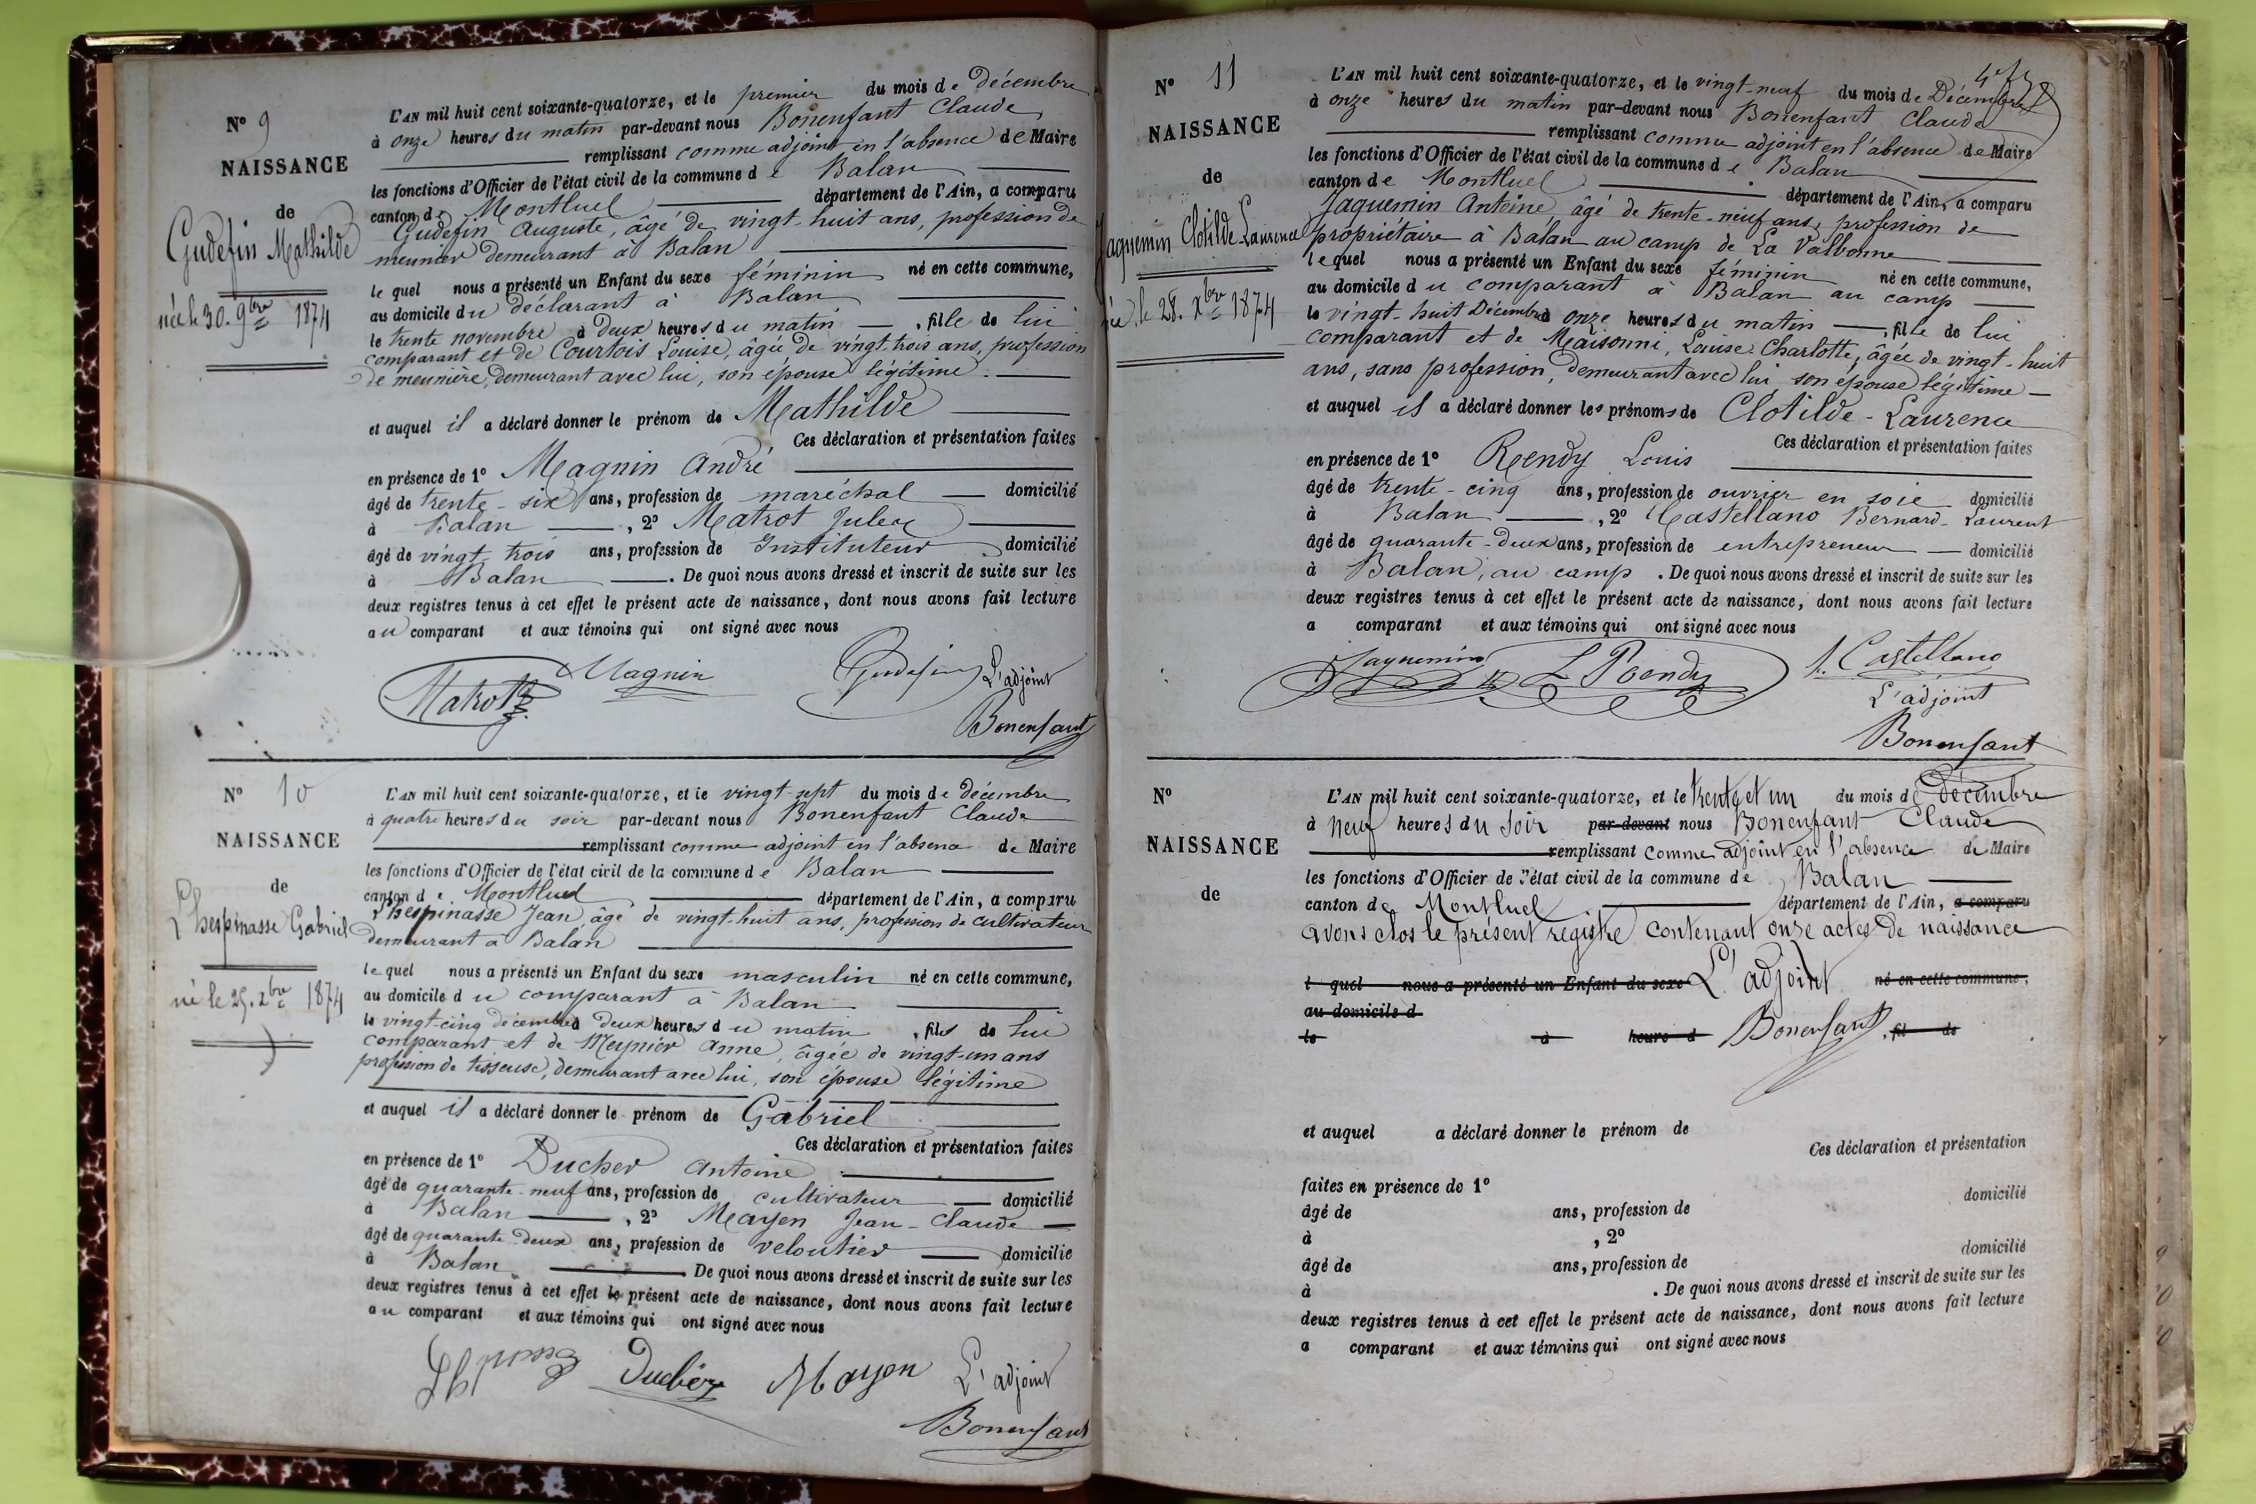 N° 9
NAISSANCE
de
Gudefin Mathilde
née le 30. 9bre 1874
L'AN mil huit cent soixante-quatorze, et le premier du mois de décembre
à onze heures du matin par-devant nous Bonenfant Claude
remplissant comme adjoint en l'absence de Maire
les fonctions d'Officier de l'état civil de la commune de Balan
canton de Montluel département de l'Ain, a comparu
Gudefin Auguste, âgé de vingt-huit ans, profession de
meunier demeurant à Balan
le quel nous a présenté un Enfant du sexe féminin né en cette commune,
au domicile du déclarant à Balan
le trente novembre à deux heures du matin, fille de lui
comparant et de Courtois Louise, âgée de vingt-trois ans, profession
de meunière, demeurant avec lui, son épouse légitime.
et auquel il a déclaré donner le prénom de Mathilde
Ces déclaration et présentation faites
en présence de 1° Magnin André
âgé de trente-six ans, profession de maréchal domicilié
à Balan, 2° Matrot Jules
âgé de vingt-trois ans, profession de Instituteur domicilié
à Balan. De quoi nous avons dressé et inscrit de suite sur les
deux registres tenus à cet effet le présent acte de naissance, dont nous avons fait lecture
au comparant et aux témoins qui ont signé avec nous
Matrot Magnin Gudefin L'adjoint
Bonenfant
N° 10
NAISSANCE
de
Lhespinasse Gabriel
né le 25. Xbre 1874
L'AN mil huit cent soixante-quatorze, et le vingt-sept du mois de décembre
à quatre heures du soir par-devant nous Bonenfant Claude
remplissant comme adjoint en l'absence de Maire
les fonctions d'Officier de l'état civil de la commune de Balan
canton de Montluel département de l'Ain, a comparu
Lhespinasse Jean, âgé de vingt-huit ans, profession de cultivateur
demeurant à Balan
le quel nous a présenté un Enfant du sexe masculin né en cette commune,
au domicile du comparant à Balan
le vingt-cinq décembre à deux heures du matin, fils de lui
comparant et de Meynier Anne, âgée de vingt-un ans
profession de tisseuse, demeurant avec lui, son épouse légitime
et auquel il a déclaré donner le prénom de Gabriel
Ces déclaration et présentation faites
en présence de 1° Ducher Antoine
âgé de quarante-neuf ans, profession de cultivateur domicilié
à Balan, 2° Mayen Jean-Claude
âgé de quarante-deux ans, profession de veloutier domicilié
à Balan. De quoi nous avons dressé et inscrit de suite sur les
deux registres tenus à cet effet le présent acte de naissance, dont nous avons fait lecture
au comparant et aux témoins qui ont signé avec nous
Mayen L'adjoint
Bonenfant
N° 11
NAISSANCE
de
Jaquemin Clotilde Laurence
née le 28. Xbre 1874
L'AN mil huit cent soixante-quatorze, et le vingt-neuf du mois de Décembre
à onze heures du matin par-devant nous Bonenfant Claude
remplissant comme adjoint en l'absence de Maire
les fonctions d'Officier de l'état civil de la commune de Balan
canton de Montluel département de l'Ain, a comparu
Jaquemin Antoine, âgé de trente-neuf ans, profession de
propriétaire à Balan au camp de La Valbonne
lequel nous a présenté un Enfant du sexe féminin né en cette commune,
au domicile du comparant à Balan au camp
le vingt-huit Décembre à onze heures du matin, fille de lui
comparant et de Maisonni, Louise Charlotte, âgée de vingt-huit
ans, sans profession, demeurant avec lui son épouse légitime
et auquel il a déclaré donner les prénoms de Clotilde-Laurence
Ces déclaration et présentation faites
en présence de 1° Rendy Louis
âgé de trente-cinq ans, profession de ouvrier en soie domicilié
à Balan, 2° Castellano Bernard-Laurent
âgé de quarante-deux ans, profession de entrepreneur domicilié
à Balan, au camp. De quoi nous avons dressé et inscrit de suite sur les
deux registres tenus à cet effet le présent acte de naissance, dont nous avons fait lecture
a comparant et aux témoins qui ont signé avec nous
Jaquemin Castellano
L'adjoint
Bonenfant
N°
NAISSANCE
de
L'AN mil huit cent soixante-quatorze, et le trente et un du mois de Décembre
à neuf heures du soir par-devant nous Bonenfant Claude
remplissant comme adjoint en l'absence de Maire
les fonctions d'Officier de l'état civil de la commune de Balan
canton de Montluel département de l'Ain, a comparu
avons clos le présent registre contenant onze actes de naissance
l quel nous a présenté un Enfant du sexe L'adjoint né en cette commune,
au domicile d
le à heure d Bonenfant, fil de
et auquel a déclaré donner le prénom de
Ces déclaration et présentation
faites en présence de 1°
âgé de ans, profession de domicilié
à , 2°
âgé de ans, profession de domicilié
à . De quoi nous avons dressé et inscrit de suite sur les
deux registres tenus à cet effet le présent acte de naissance, dont nous avons fait lecture
a comparant et aux témoins qui ont signé avec nous